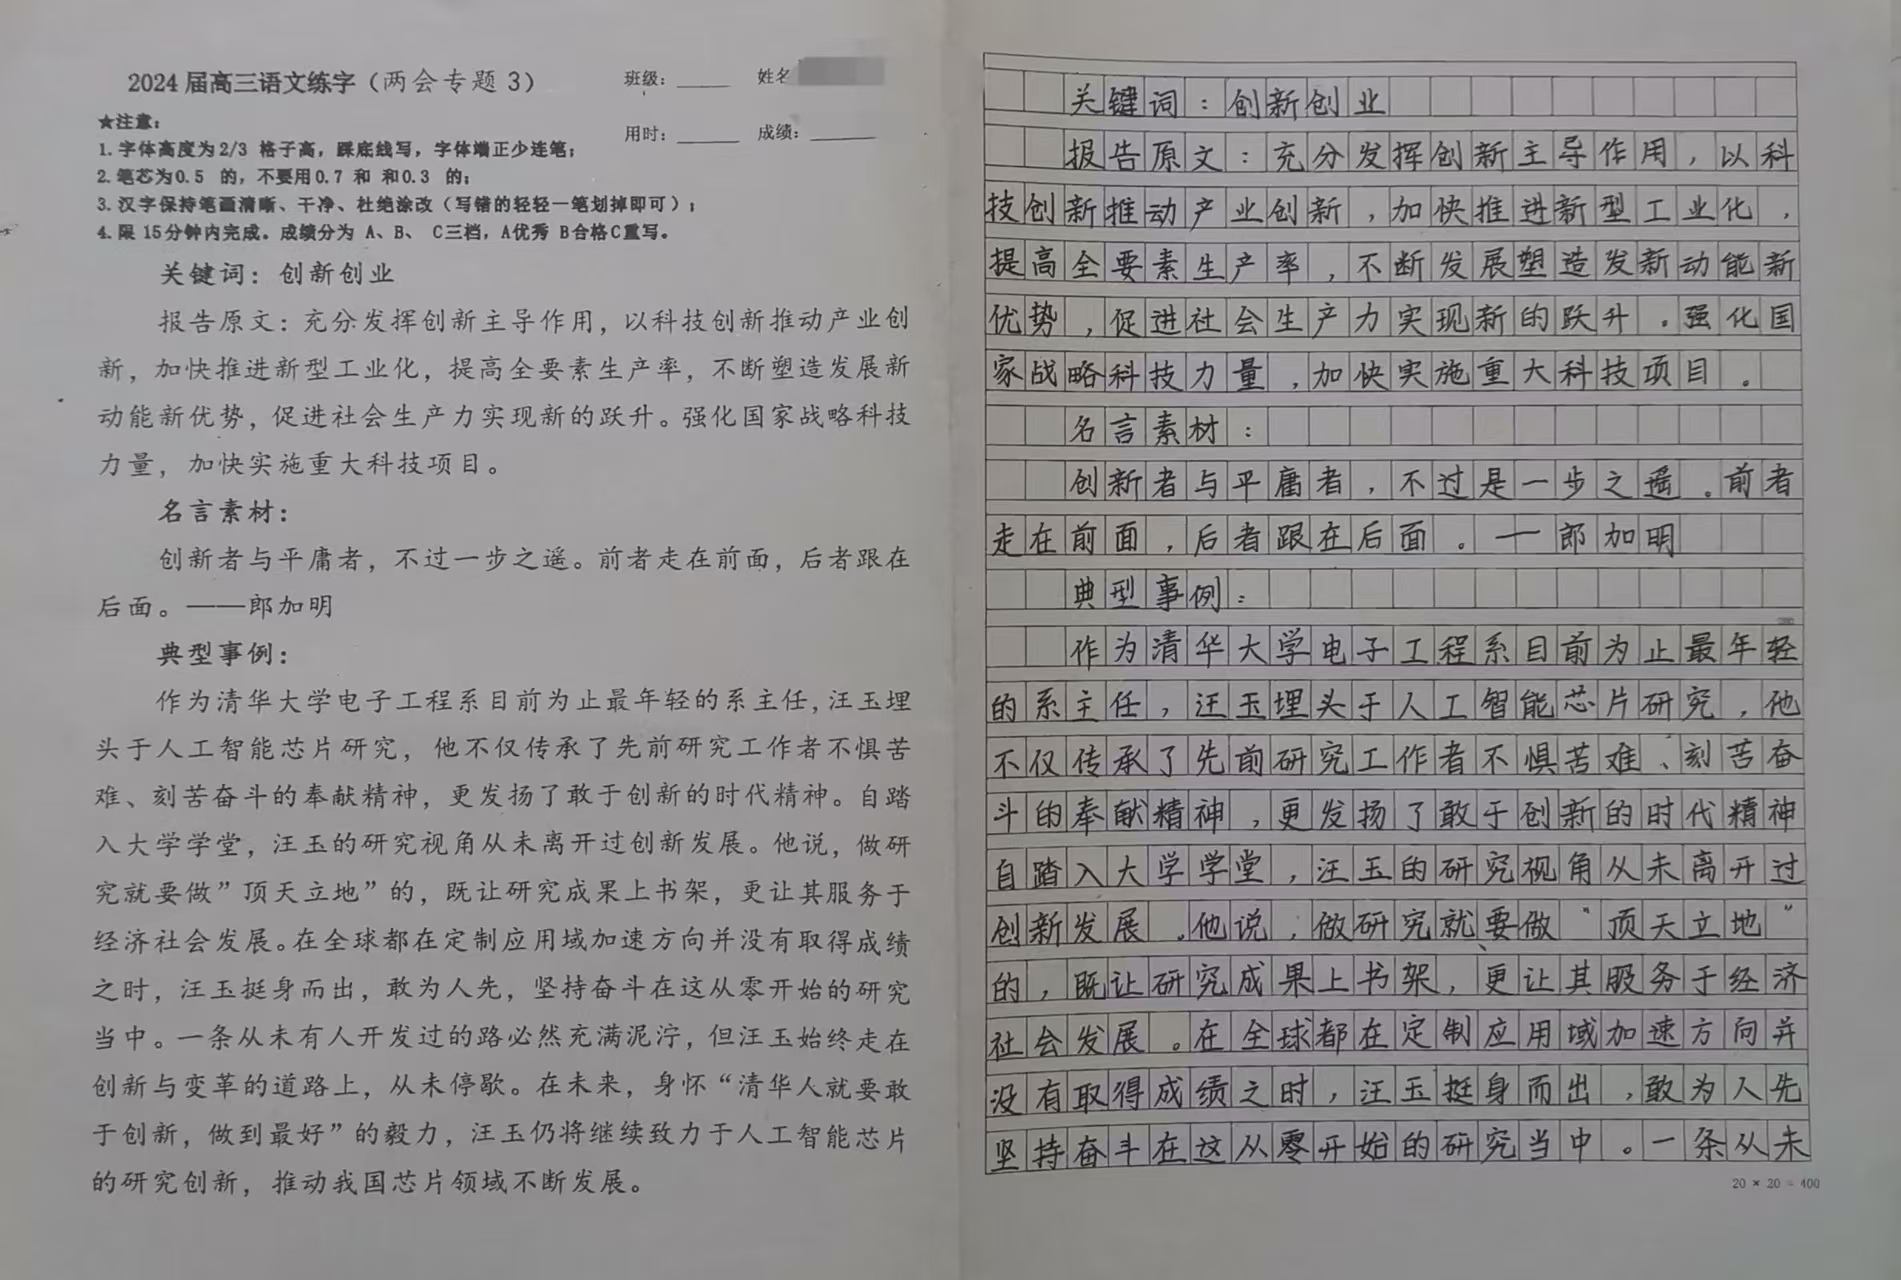 2024届高三语文练字（两会专题3）
班级：
姓名
★注意：
用时：
成绩：
1.字体高度为2/3 格子高，踩底线写，字体端正少连笔；
2.笔芯为0.5 的，不要用0.7 和 和0.3 的；
3.汉字保持笔画清晰、干净、杜绝涂改（写错的轻轻一笔划掉即可）；
4.限15分钟内完成。成绩分为 A、B、 C三档，A优秀 B合格C重写。
关键词：创新创业
报告原文：充分发挥创新主导作用，以科技创新推动产业创
新，加快推进新型工业化，提高全要素生产率，不断塑造发展新
动能新优势，促进社会生产力实现新的跃升。强化国家战略科技
力量，加快实施重大科技项目。
名言素材：
创新者与平庸者，不过一步之遥。前者走在前面，后者跟在
后面。——郎加明
典型事例：
作为清华大学电子工程系目前为止最年轻的系主任，汪玉埋
头于人工智能芯片研究，他不仅传承了先前研究工作者不惧苦
难、刻苦奋斗的奉献精神，更发扬了敢于创新的时代精神。自踏
入大学学堂，汪玉的研究视角从未离开过创新发展。他说，做研
究就要做”顶天立地”的，既让研究成果上书架，更让其服务于
经济社会发展。在全球都在定制应用域加速方向并没有取得成绩
之时，汪玉挺身而出，敢为人先，坚持奋斗在这从零开始的研究
当中。一条从未有人开发过的路必然充满泥泞，但汪玉始终走在
创新与变革的道路上，从未停歇。在未来，身怀“清华人就要敢
于创新，做到最好”的毅力，汪玉仍将继续致力于人工智能芯片
的研究创新，推动我国芯片领域不断发展。
关键词：创新创业
报告原文：充分发挥创新主导作用，以科
技创新推动产业创新，加快推进新型工业化，
提高全要素生产率，不断发展塑造发新动能新
优势，促进社会生产力实现新的跃升。强化国
家战略科技力量，加快实施重大科技项目。
名言素材：
创新者与平庸者，不过是一步之遥。前者
走在前面，后者跟在后面。一郎加明
典型事例：
作为清华大学电子工程系目前为止最年轻
的系主任，汪玉埋头于人工智能芯片研究，他
不仅传承了先前研究工作者不惧苦难、刻苦奋
斗的奉献精神，更发扬了敢于创新的时代精神
自踏入大学学堂，汪玉的研究视角从未离开过
创新发展。他说，做研究就要做“顶天立地”
的，既让研究成果上书架，更让其服务于经济
社会发展。在全球都在定制应用域加速方向并
没有取得成绩之时，汪玉挺身而出，敢为人先
坚持奋斗在这从零开始的研究当中。一条从未
20 × 20 = 400